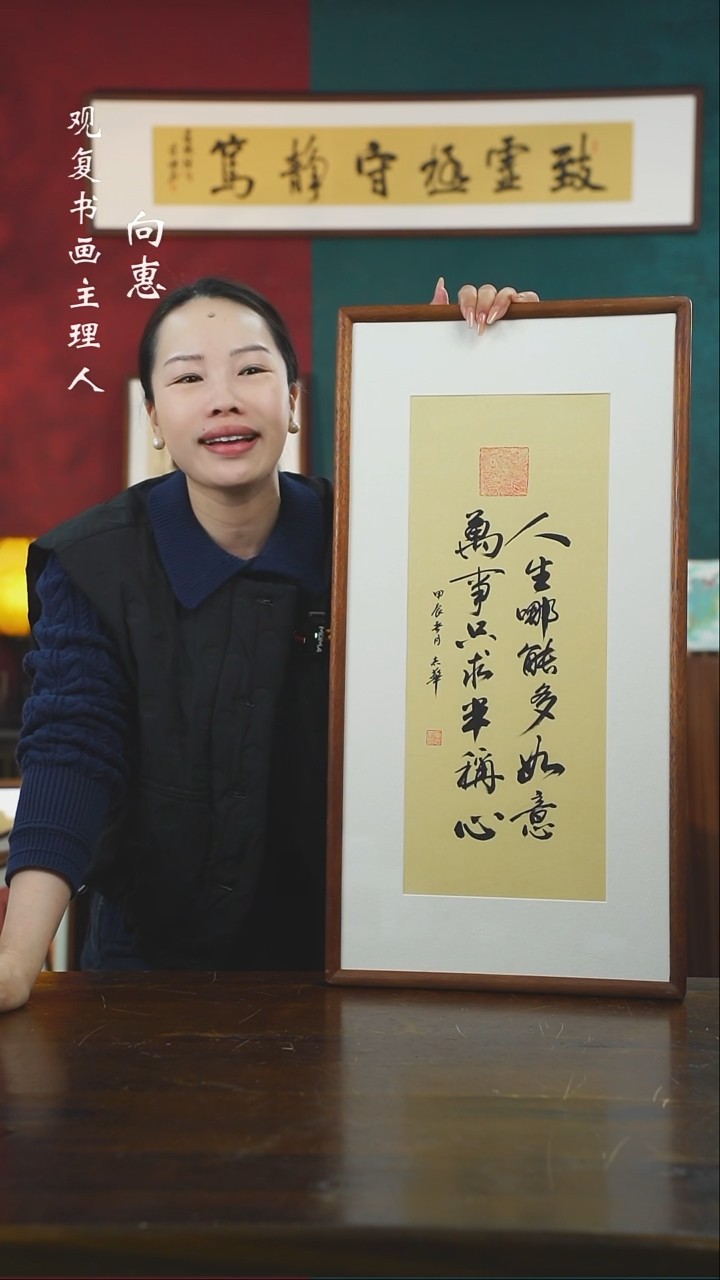 观复书画主理人
向惠
致虛極守靜篤
人生哪能多如意
萬事只求半稱心
甲辰